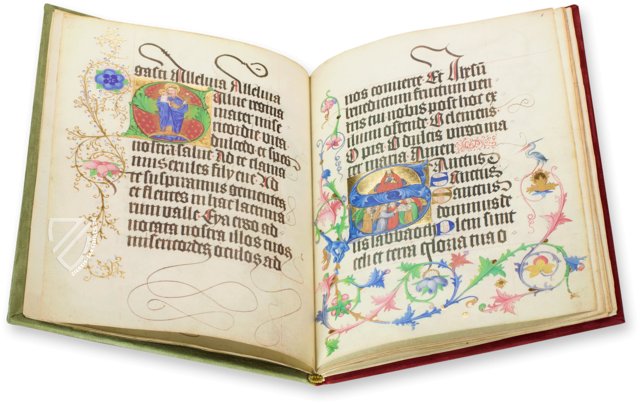 gasti Alleluia Alleluia
alue regina
mater mise
ricordie vita
dulcedo et spes
nostra salue Ad te clama
mus exules filÿ eue Ad
te suspiramus gementes
et flentes in hac lacrima
rum valle Eya ergo ad
uocata nostra illos tuos
misericordes oculos ad
nos conuerte Et Ihesum
benedictum fructum ven
tris tui nobis post hoc ex
ilium ostende O clemens
O pia O dulcis virgo ma
ria
Sanctus
Sanctus
Sanctus
dominus de
us sabbaoth Pleni sunt
celi et terra gloria tua O